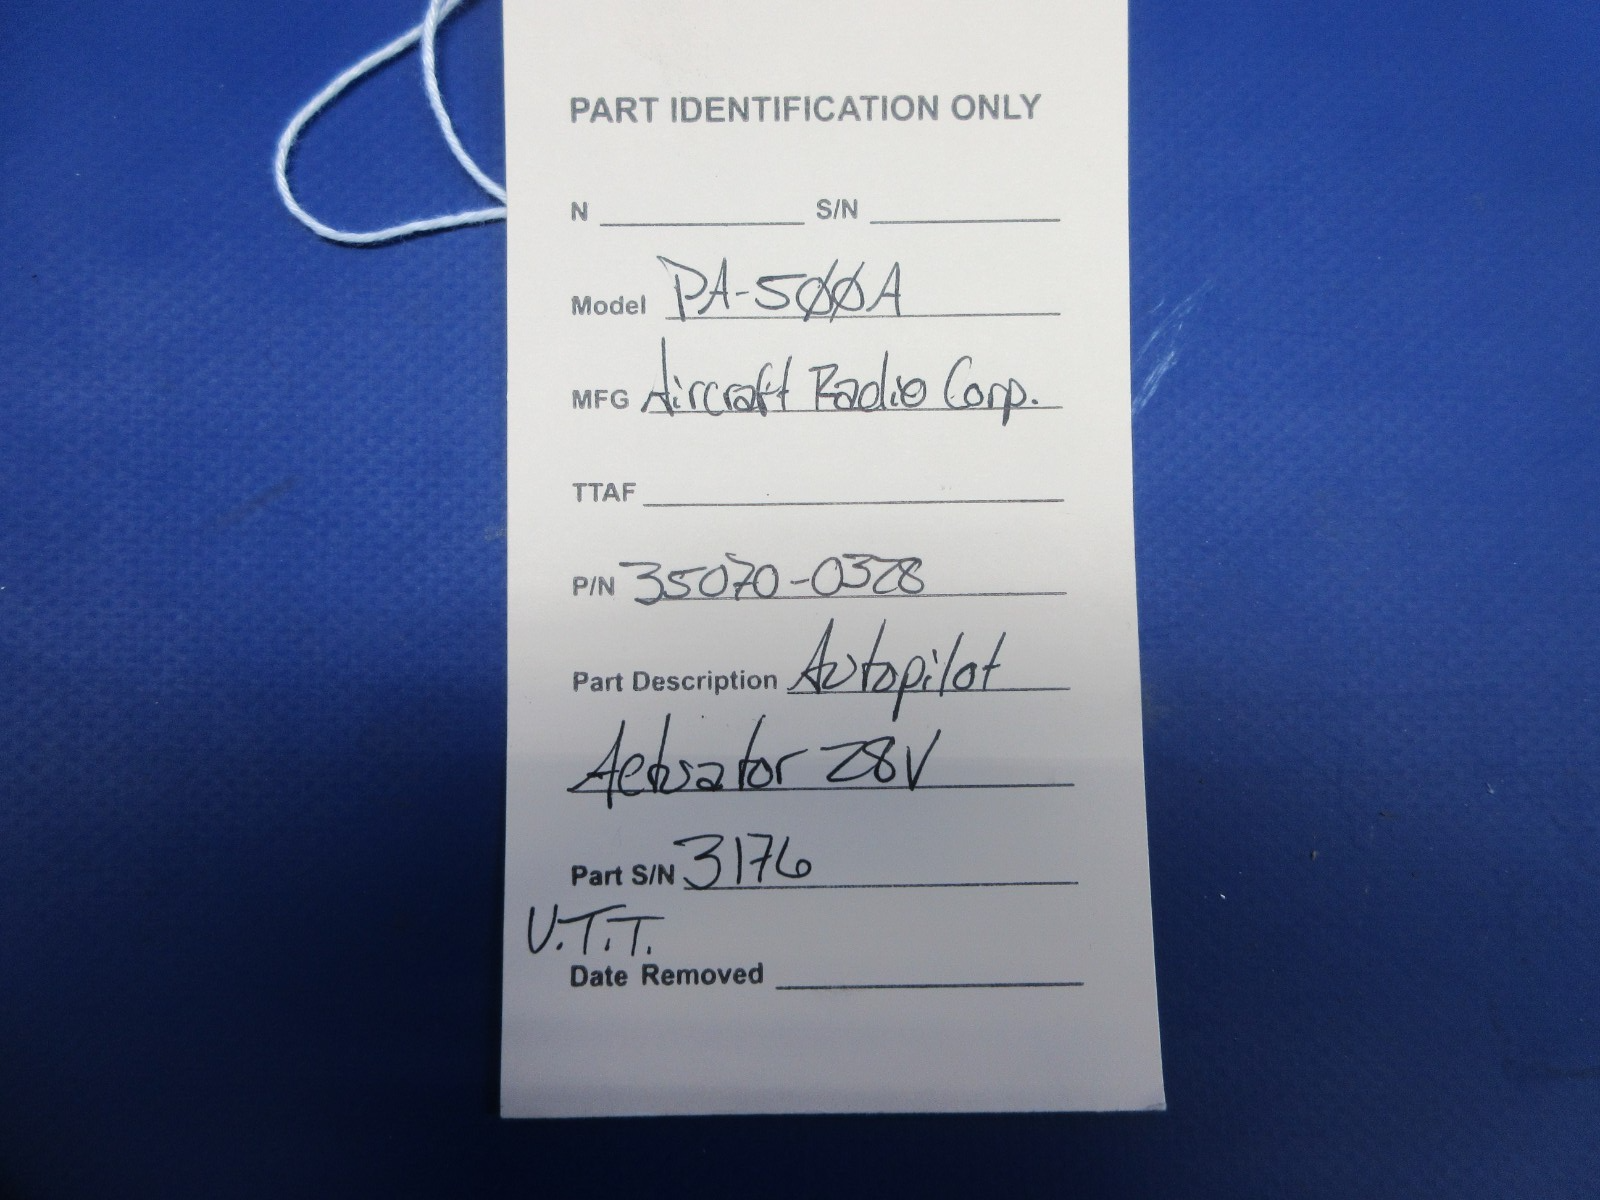 PART IDENTIFICATION ONLY
N S/N
Model PA-500A
MFG Aircraft Radio Corp.
TTAF
P/N 35070-0328
Part Description Autopilot
Actuator 28V
Part S/N 3176
U.T.T.
Date Removed